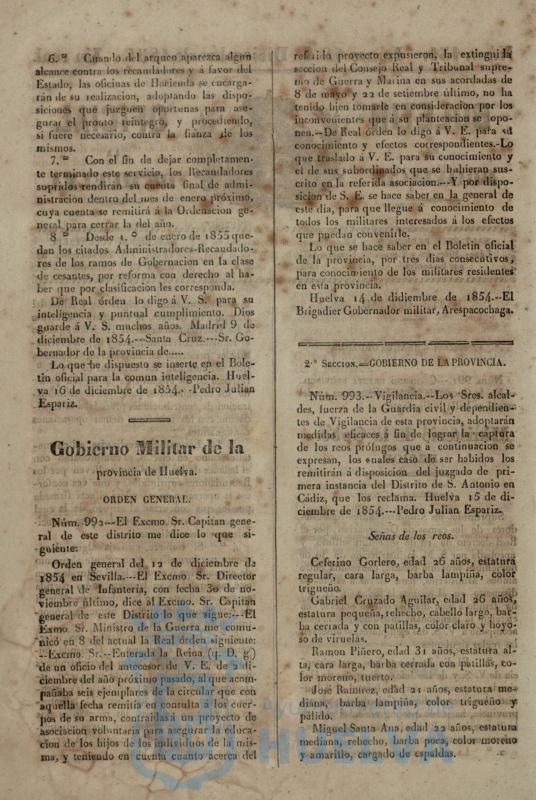 6.ª Cuando del arqueo aparezca algun
alcance contra los recaudadores y á favor del
Estado, las oficinas de Hacienda se encarga-
rán de su realizacion, adoptando las dispo-
siciones que juzguen oportunas para ase-
gurar el pronto reintegro, y procediendo,
si fuere necesario, contra la fianza de los
mismos.
7.ª Con el fin de dejar completamen-
te terminado este servicio, los Recaudadores
suprados rendirán su cuenta final de admi-
nistracion dentro del mes de enero próximo,
cuya cuenta se remitirá á la Ordenacion ge-
neral para cerrar la del año.
8.ª Desde 1.º de enero de 1855 que-
dan los citados Administradores-Recaudado-
res de los ramos de Gobernacion en la clase
de cesantes, por reforma con derecho al ha-
ber que por clasificacion les corresponda.
De Real órden lo digo á V. S. para su
inteligencia y puntual cumplimiento. Dios
guarde á V. S. muchos años. Madrid 9 de
diciembre de 1854.--Santa Cruz.--Sr. Go-
bernador de la provincia de.....
Lo que he dispuesto se inserte en el Bole-
tin oficial para la comun inteligencia. Huel-
va 16 de diciembre de 1854.--Pedro Julian
Espariz.
Gobierno Militar de la
provincia de Huelva.
ORDEN GENERAL.
Núm. 992--El Excmo. Sr. Capitan gene-
ral de este distrito me dice lo que si-
guiente:
Orden general del 12 de diciembre de
1854 en Sevilla.--El Excmo Sr. Director
general de Infantería, con fecha 30 de no-
viembre último, dice al Excmo. Sr. Capitan
general de este Distrito lo que sigue:--El
Exmo. Sr. Ministro de la Guerra me comu-
nicó en 8 del actual la Real órden siguiente:
--Excmo. Sr.--Enterada la Reina (q. D. g)
de un oficio del antecesor de V. E. de 2 di-
ciembre del año próximo pasado, al que acom-
pañaba seis ejemplares de la circular que con
aquella fecha remitia en consulta á los cuer-
pos de su arma, contraidas á un proyecto de
asociacion voluntaria para asegurar la educa-
cion de los hijos de los individuos de la mis-
ma, y teniendo en cuenta cuanto acerca del
referido proyecto expusieron, la extinguida
seccion del Consejo Real y Tribunal supre-
mo de Guerra y Marina en sus acordadas de
8 de mayo y 22 de setiembre último, no ha
tenido bien tomarle en consideracion por los
inconvenientes que á su planteacion se opo-
nen.--De Real órden lo digo á V. E. para su
conocimiento y efectos correspondientes.-Lo
que traslado á V. E. para su conocimiento y
el de sus subordinados que se hubieran sus-
crito en la referida asociacion.--Y por dispo-
sicion de S. E. se hace saber en la general de
este dia, para que llegue á conocimiento de
todos los militares interesados á los efectos
que puedan convenirle.
Lo que se hace saber en el Boletin oficial
de la provincia, por tres dias consecutivos,
para conocimiento de los militares residentes
en esta provincia.
Huelva 14 de didiembre de 1854.--El
Brigadier Gobernador militar, Arespacochaga.
2.ª SECCION.=GOBIERNO DE LA PROVINCIA.
Núm. 993.--Vigilancia.--Los Sres. alcal-
des, fuerza de la Guardia civil y dependien-
tes de Vigilancia de esta provincia, adoptarán
medidas eficaces á fin de lograr la captura
de los reos prófugos que á continuacion se
expresan, los cuales caso de ser habidos los
remitirán á disposicion del juzgado de pri-
mera instancia del Distrito de S. Antonio en
Cádiz, que los reclama. Huelva 15 de di-
ciembre de 1854.---Pedro Julian Espariz.
Señas de los reos.
Ceferino Gorlero, edad 26 años, estatura
regular, cara larga, barba lampiña, color
trigueño.
Gabriel Cruzado Aguilar, edad 26 años,
estatura pequeña, rehecho, cabello largo, bar-
ba cerrada y con patillas, color claro y hoyo-
so de viruelas.
Ramon Piñero, edad 31 años, estatura al-
ta, cara larga, barba cerrada con patillas, co-
lor moreno, tuerto.
José Ramirez, edad 21 años, estatura me-
diana, barba lampiña, color trigueño y
pálido.
Miguel Santa Ana, edad 22 años, estatura
mediana, rehecho, barba poca, color moreno
y amarillo, cargado de espaldas.